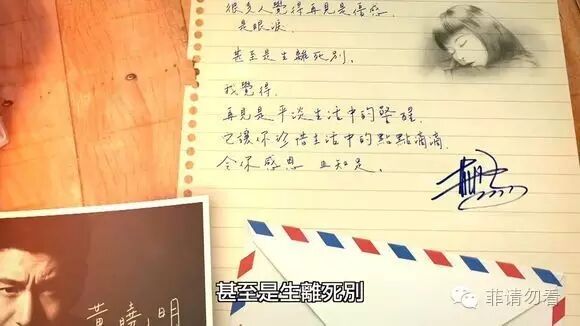 很多人覺得再見是傷感
是眼淚
甚至是生離死別,
我覺得,
再見是平淡生活中的警醒
它讓你珍惜生活中的點點滴滴
令你感恩 且知足。
黃曉明
甚至是生離死別
菲请勿看